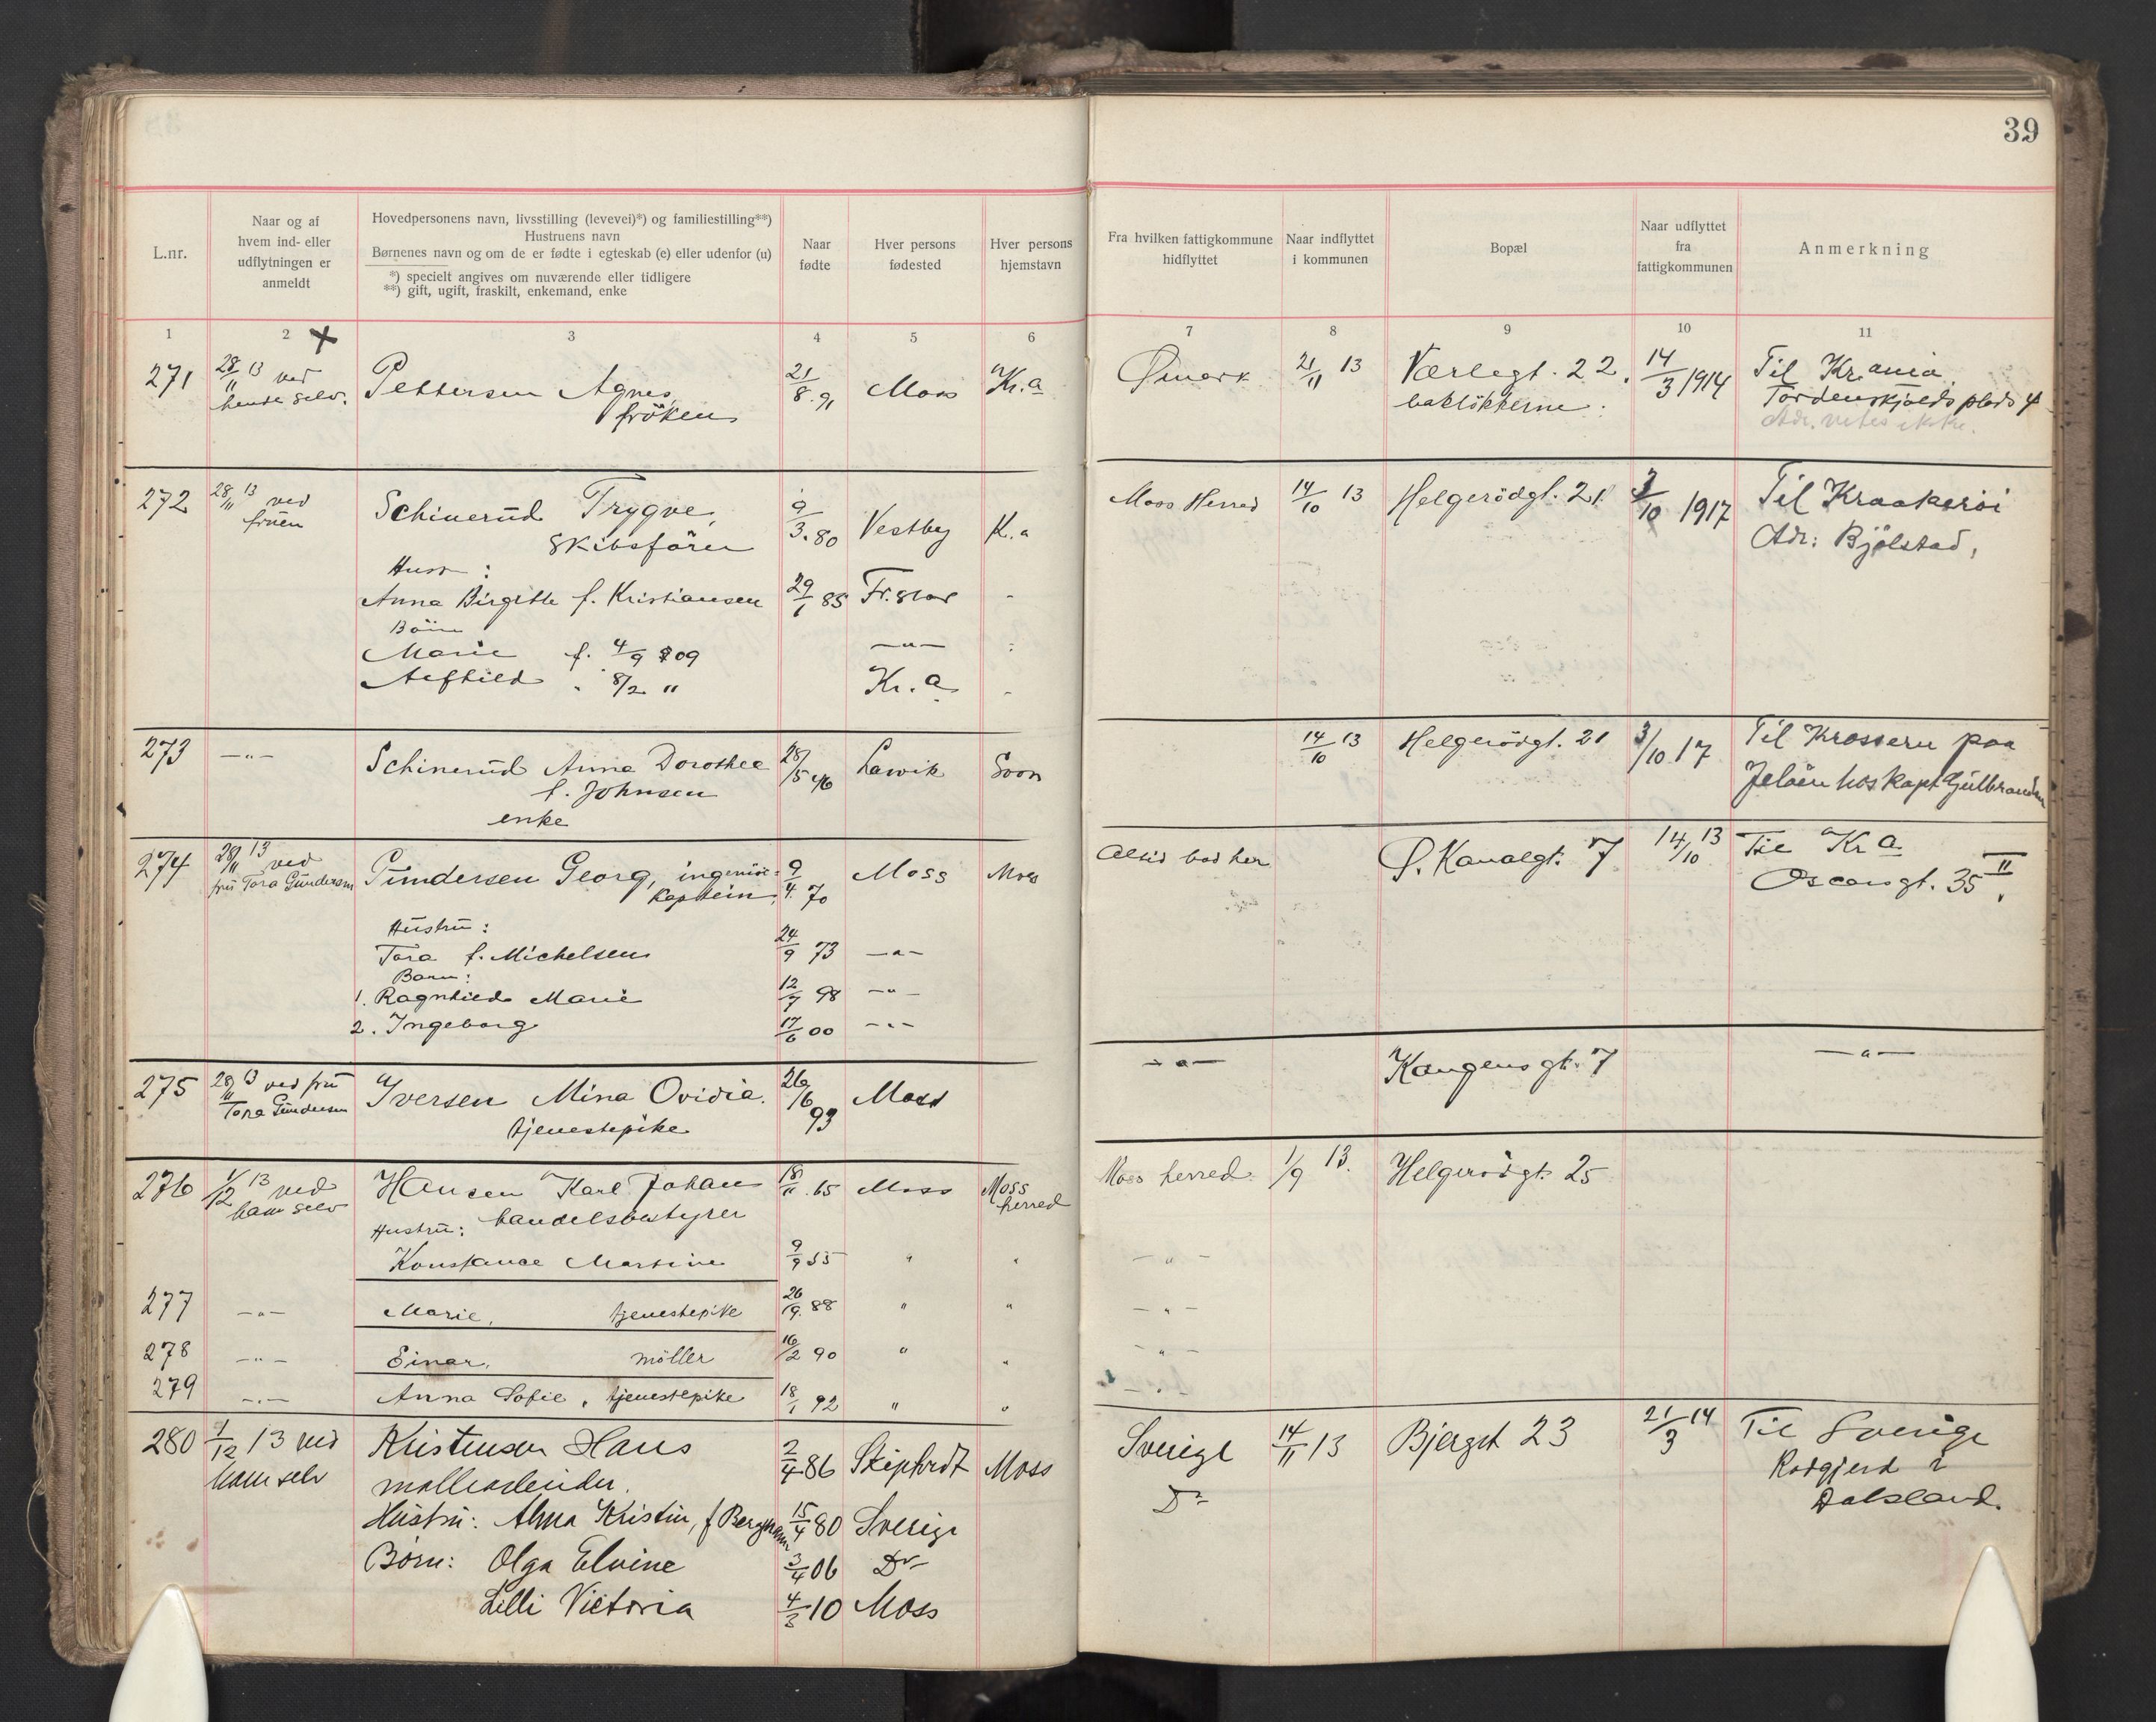 39
L.nr.
Naar og af
hvem ind- eller
udflytningen er
anmeldt
Hovedpersonens navn, livsstilling (levevei)*) og familiestilling**)
Hustruens navn
Børnenes navn og om de er fødte i egteskab (e) eller udenfor (u)
*) specielt angives om nuværende eller tidligere
**) gift, ugift, fraskilt, enkemand, enke
Naar
fødte
Hver persons
fødested
Hver persons
hjemstavn
Fra hvilken fattigkommune
hidflyttet
Naar indflyttet
i kommunen
Bopæl
Naar udflyttet
fra
fattigkommunen
Anmerkning
1 2 X 3 4 5 6 7 8 9 10 11
271 28/11 13 ved Pettersen Agnes, 21/8.91 Moss Kr.a Ømark 21/11 13 Værlegt. 22. 14/3 1914 Til Kr.ania
hende selv. fröken baklökkerne: Tordenskjolds plads 4
Adr. vites ikke.
272 28/11 13 ved Schinerud Trygve, 9/3.80 Vestby K.a Moss Herred 14/10 13 Helgerödgt. 21. 3/10 1917 Til Kraakeröi
fruen Skibsförer Adr: Bjölstad,
Husr:
Anna Birgitte f. Kristiansen 29/1 85 Fr.stad -
Börn
Marie f. 4/9 09 -"-
Alfhild " 8/2 " Kr.a -
273 -"- Schinerud Anna Dorothea 28/5 46 Larvik Soon 14/10 13 Helgerödgt. 21 3/10 17 Til Krossern paa
f. Johnsen Jelöen hos Kapt Gulbrandsen
enke
274 28/11 13 ved Gundersen Georg, ingeniör- 9/4.70 Moss Moss Altid bod her Ø. Kanalgt. 7 14/10 13 Til Kr a
fru Tora Gundersen kaptein, Oscarsgt. 35 II.
Hustru:
Tora f. Michelsen 24/9 73 -"-
Barn:
1. Ragnhild Marie 12/7 98 -"-
2. Ingeborg 17/6 00 -"-
275 28/11 13 ved fru Iversen Mina Ovidia. 26/6 93 Moss -"- Kongensgt. 7 -"-
Tora Gundersen tjenestepike
276 1/12 13 ved Hansen Karl Johan 18/11.65 Moss Moss herred Moss herred 1/9 13. Helgerödgt. 25
ham selv handelsbestyrer
Hustru:
Konstance Martine 9/9 55 " " -"-
277 -"- Marie, tjenestepike 26/9.88 " " -"-
278 -"- Einar, möller 16/2 90 " " -"-
279 -"- Anna Sofie, tjenestepike 18/1 92 " " -"-
280 1/12 13 ved Kristensen Hans 2/4 86 Skiptvedt Moss Sverige 14/11 13 Bjerget 23 21/3 14 Til Sverige
ham selv mollearbeider. Do Rödgjerd i
Dalsland.
Hustru: Alma Kristin, f Bergman 15/4 80 Sverige
Börn: Olga Elvine 3/4 06 Do
Lilli Victoria 4/3 10 Moss